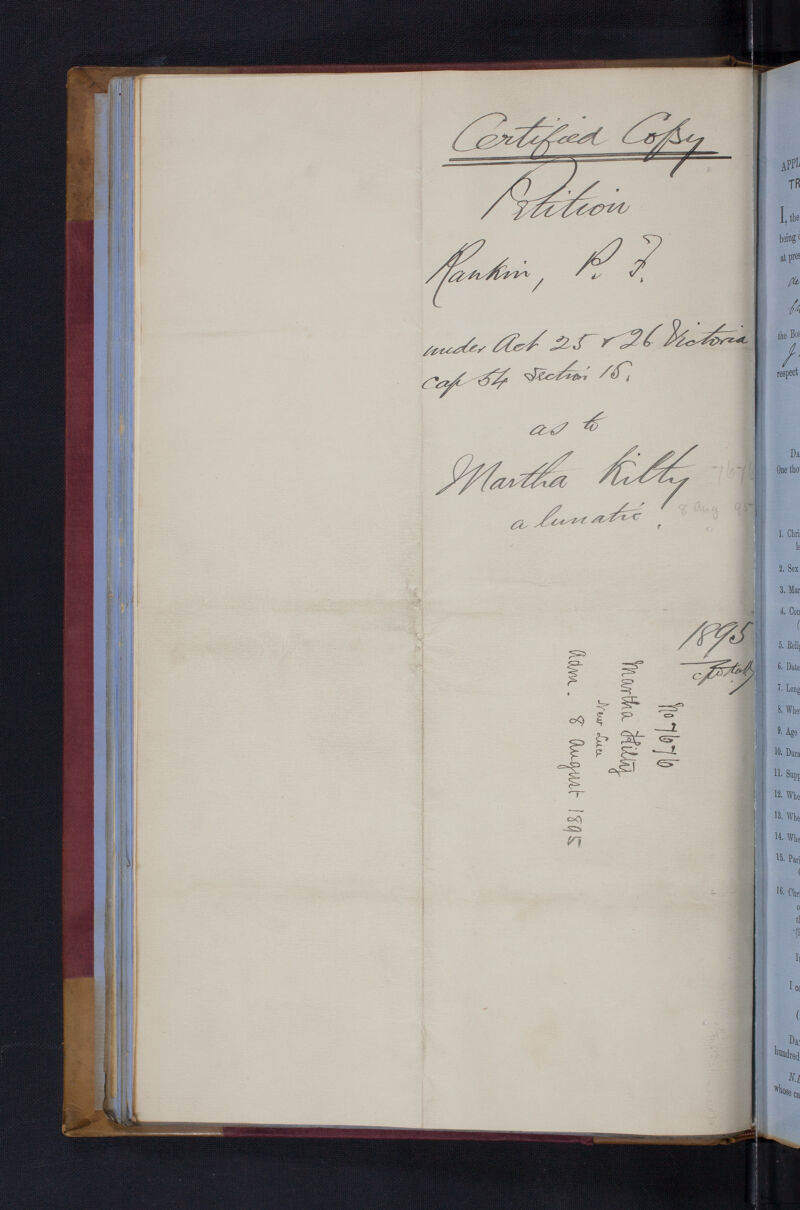 Certified Copy
Petition
Rankin, P. F.
under Act 25 & 26 Victoria
cap 54 Section 15.
as to
Martha Kilty 7676
a lunatic. 8 Aug 95
1895
No 7676
Martha Kilty
New Luce
adm. 8 August 1895
APPL
TR
I, the
being
at pres
the Bo
respect
Da
One tho
1. Chri
2. Sex
3. Mar
4. Con
5. Reli
6. Date
7. Leng
8. Whe
9. Age
10. Dura
11. Supp
12. Whe
13. Whe
14. Whe
15. Pari
16. Chr
I
I o
Da
hundred
N.
whose ca